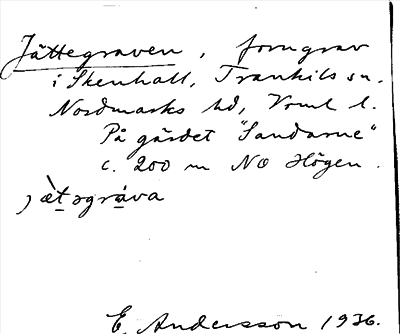 Jättegraven, forngrav
i Skenhall, Trankils sn.
Nordmarks hd, Vrml l.
På gärdet "Sandarne"
c. 200 m NO Högen.
jæ̀t̠əgrá̠va
E. Andersson 1936.